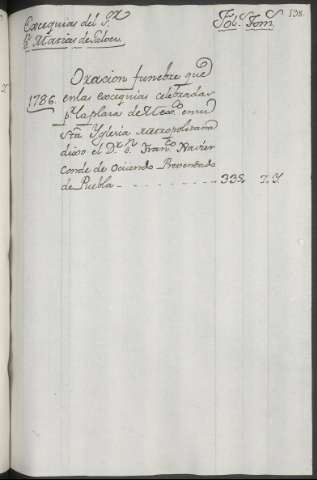 Exequias del S.r
D. Matias de Galvez.
Fol.s Tom.s
138
Oracion funebre que
1786. en las exequias celebradas
en
Sta Yglesia Metropolitana
dixo el D.r D. Fran.co Xavier
Conde de Oviendo Prevendado
de Puebla - - - - - - - - - 335 7. J.